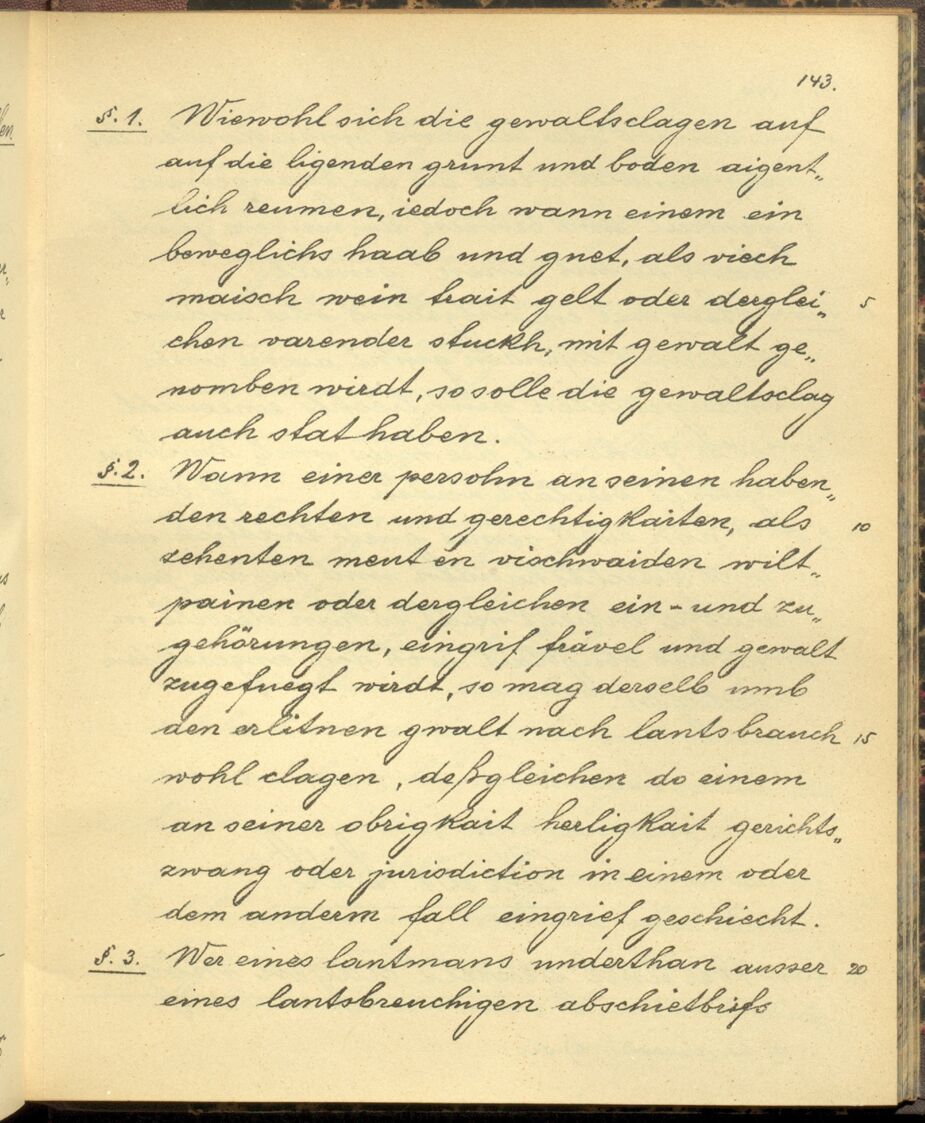 143.
§. 1. Wiewohl sich die gewaltsclagen auf
auf die ligenden grunt und boden aigent„
lich reumen, iedoch wann einem ein
beweglichs haab und guet, als viech
maisch wein trait gelt oder derglei„ 5
chen varender stuckh, mit gewalt ge„
nomben wirdt, so solle die gewaltsclag
auch stat haben.
§. 2. Wann einer persohn an seinen haben„
den rechten und gerechtigkaiten, als 10
zehenten meuten vischwaiden wilt„
painen oder dergleichen ein- und zu„
gehörungen, eingrif frävel und gewalt
zugefuegt wirdt, so mag derselb umb
den erlitnen gwalt nach lantsbrauch 15
wohl clagen, deßgleichen do einem
an seiner obrigkait herligkait gerichts„
zwang oder jurisdiction in einem oder
dem anderm fall eingrief geschiecht.
§. 3. Wer eines lantmans underthan ausser 20
eines lantsbreuchigen abschietbriefs